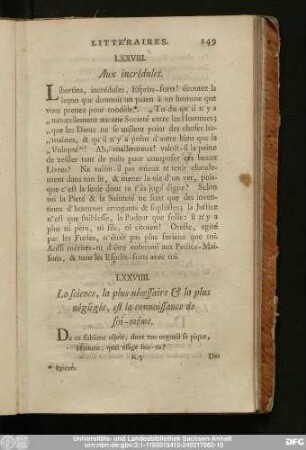 LITTÉRAIRES. 249
LXXVIII.
Aux incrédules.
Libertins, incrédules, Esprits-forts! écoutez la
leçon que donnoit un païen à un homme que
vous prenez pour modèle*. „Tu dis qu'il n'y a
„ naturellement aucune Société entre les Hommes;
„ que les Dieux ne se mêlent point des choses hu-
„ maines, & qu'il n'y a point d'autre bien que la
„ Volupté“! Ah, malheureux! valoit-il la peine
de veiller tant de nuits pour composer ces beaux
Livres? Ne valoit-il pas mieux te tenir chaude-
ment dans ton lit, & mener la vie d'un ver, puis-
que c'est la seule dont tu t'ès jugé digne? Selon
toi la Piété & la Sainteté ne sont que des inven-
tions d'hommes arrogants & sophistes; la Justice
n'est que foiblesse, la Pudeur que folie: il n'y a
plus ni père, ni fils, ni citoïen! Oreste, agité
par les Furies, n'étoit pas plus furieux que toi.
Aussi mérites-tu d'être enfermé aux Petites-Mai-
sons, & tous les Esprits-forts avec toi.
LXXVIIII.
La science, la plus nécessaire & la plus
négligée, est la connoissance de
soi-même.
De ce sublime esprit, dont ton orgueil se pique,
Homme, quel usage fais-tu?
R 5 Des
* Epicure.
Universitäts- und Landesbibliothek Sachsen-Anhalt
urn:nbn:de:gbv:3:1-1192015415-249217662-18
DFG